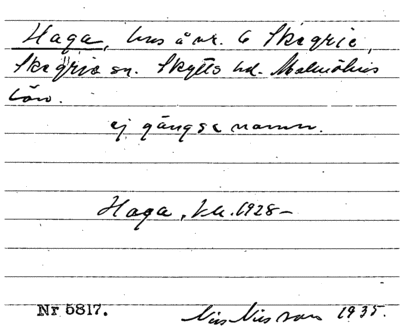 Haga, hus å nr. 6 Skegrie,
Skegrie sn. Skytts hd. Malmöhus
län.
ej gängse namn.
Haga, 1928-
Nr 5817.
Nils Nilsson 1935.